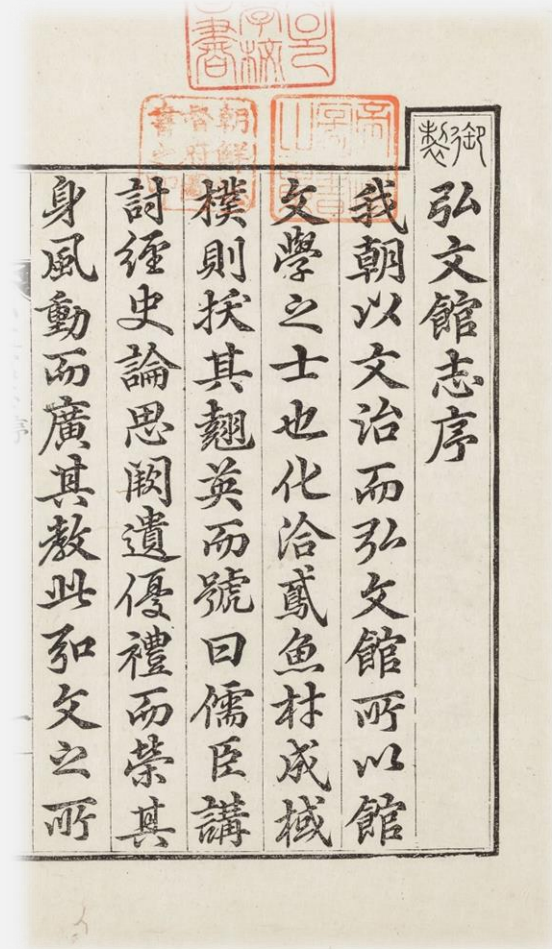 御製
弘文館志序
我朝以文治而弘文館所以館
文學之士也化洽鳶魚材成棫
樸則拔其翹英而號曰儒臣講
討經史論思闕遺優禮而榮其
身風動而廣其敎此弘文之所
朝鮮總
督府圖
書之印